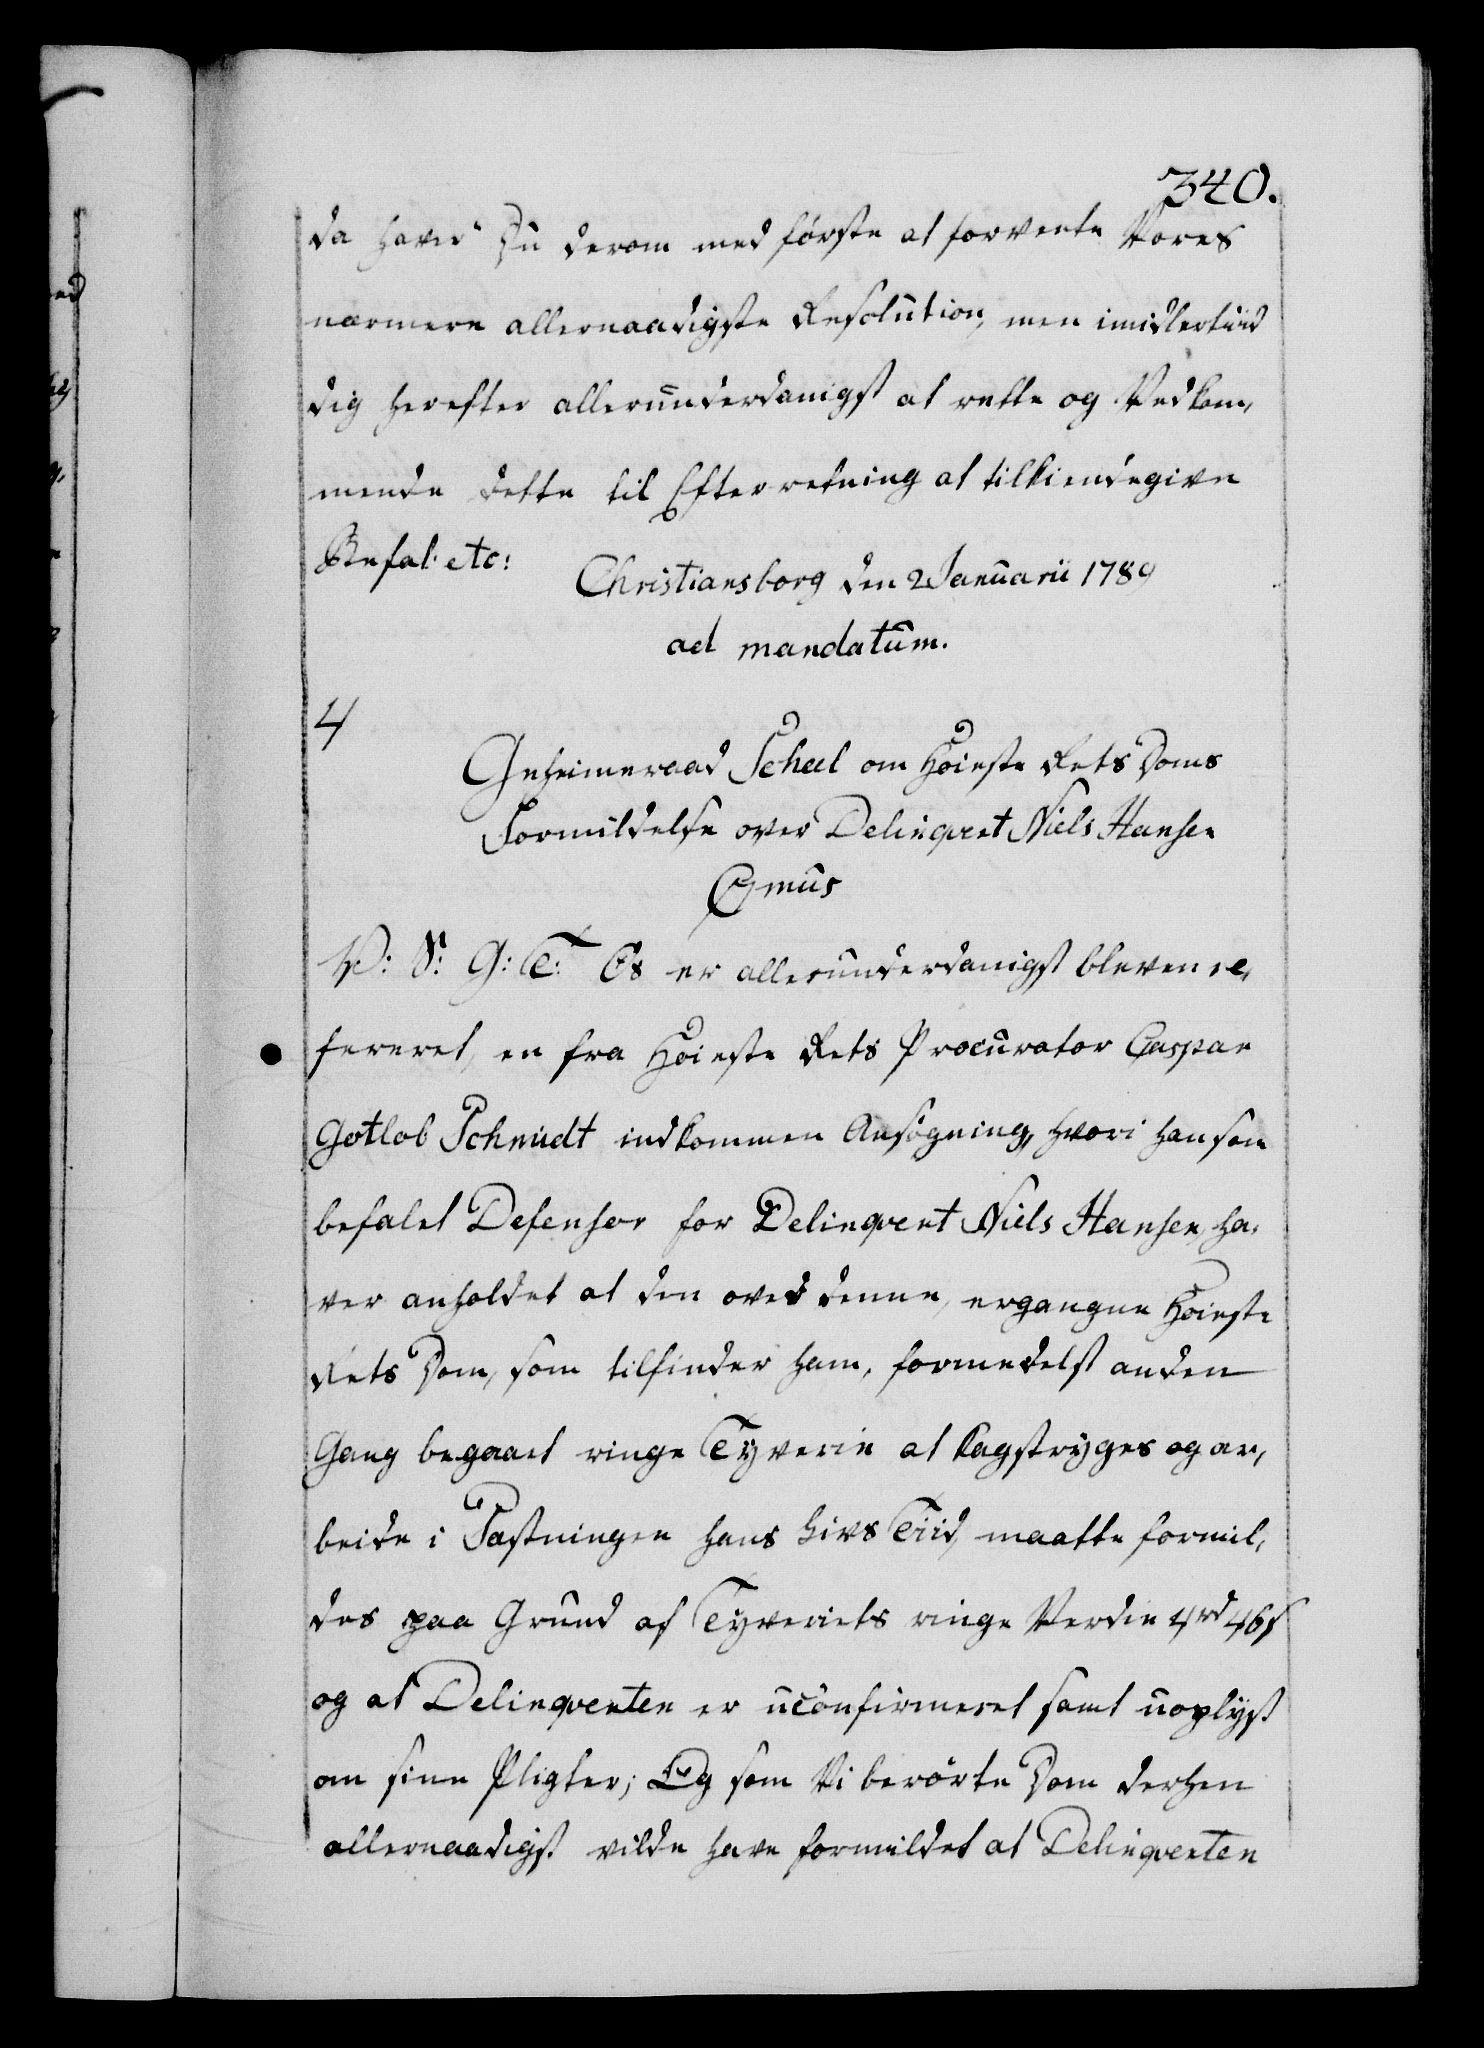 340.
da haver Du derom med første at forvente Vores
nærmere allernaadigste Resolution, men imidlertiid
dig herefter allerunderdanigst at rette og Vedkom,
mende dette til Efterretning at tilkiendegive
Befal: etc:
Christiansborg den 2 Januarii 1789
ad mandatum.
4
Geheimeraad Scheel om Høieste Rets Doms
Formildelse over Delinqvent Niels Hansen
C7mus
V: S: G: T: Os er allerunderdanigst bleven re,
fereret, en fra Høieste Rets Procurator Caspar
Gotlob Schmidt indkommen Ansøgning, hvori han som
befalet Defensor for Delinqvent Niels Hansen, ha,
ver anholdet at den over denne, ergangne Høieste
Rets Dom, som tilfinder ham, formedelst anden
Gang begaaet ringe Tyverie at kagstryges og ar,
beide i Fæstningen hans Livs Tiid, maatte formil,
des paa Grund af Tyveriets ringe Verdie 4 rd 46 s
og at Delinqventen er uconfirmeret samt uoplyst
om sine Pligter; Og som Vi berørte Dom derhen
allernaadigst vilde have formildet at Delinqventen